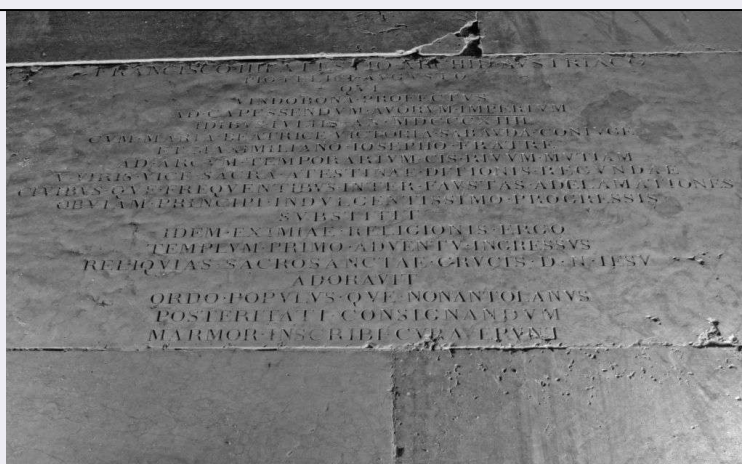 FRANCISCO IIII ATESTINO ARCHID AVSTRIACO
AVGVSTO
QVI
VINDOBONA PROFECTVS
AD CAPESSENDVM AVORVM IMPERIVM
IDIBVS MDCCCXIIII
CVM MARIA BEATRICE VICTORIA SABAVDA CONIVGE
ET MAXIMILIANO IOSEPHO FRATRE
AD ARCVM TEMPORARIVM CIS RIVVM MVTIAM
VICE SACRA ATESTINAE DITIONIS REGVNDAE
CIVIBVS QVE FREQVENTIBVS INTER FAVSTAS ADCLAMATIONES
OBVIAM PRINCIPI INDVLGENTISSIMO PROGRESSIS
SVBSTITIT
IDEM EXIMIAE RELIGIONIS ERGO
TEMPLVM PRIMO ADVENTV INGRESSVS
RELIQVIAS SACROSANCTAE CRVCIS D N IESV
ADORAVIT
ORDO POPVLVS QVE NONANTOLANVS
POSTERITATI CONSIGNANDVM
MARMOR INSCRIBI CVRAVERVNT